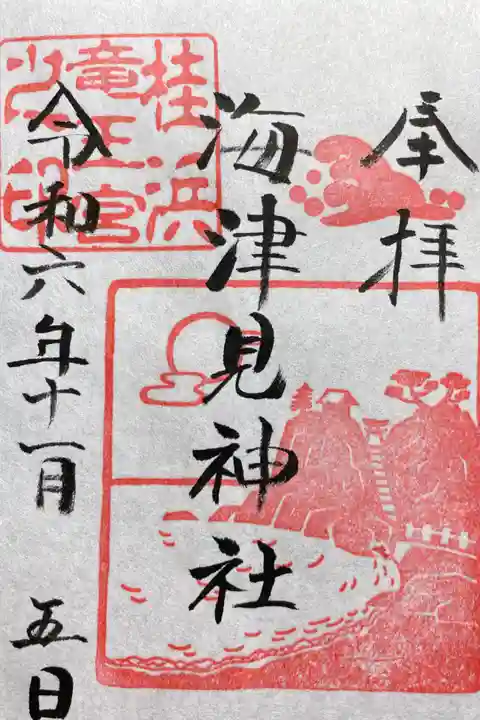 奉拝
海津見神社
令和六年十一月 五日
桂浜
竜王宮